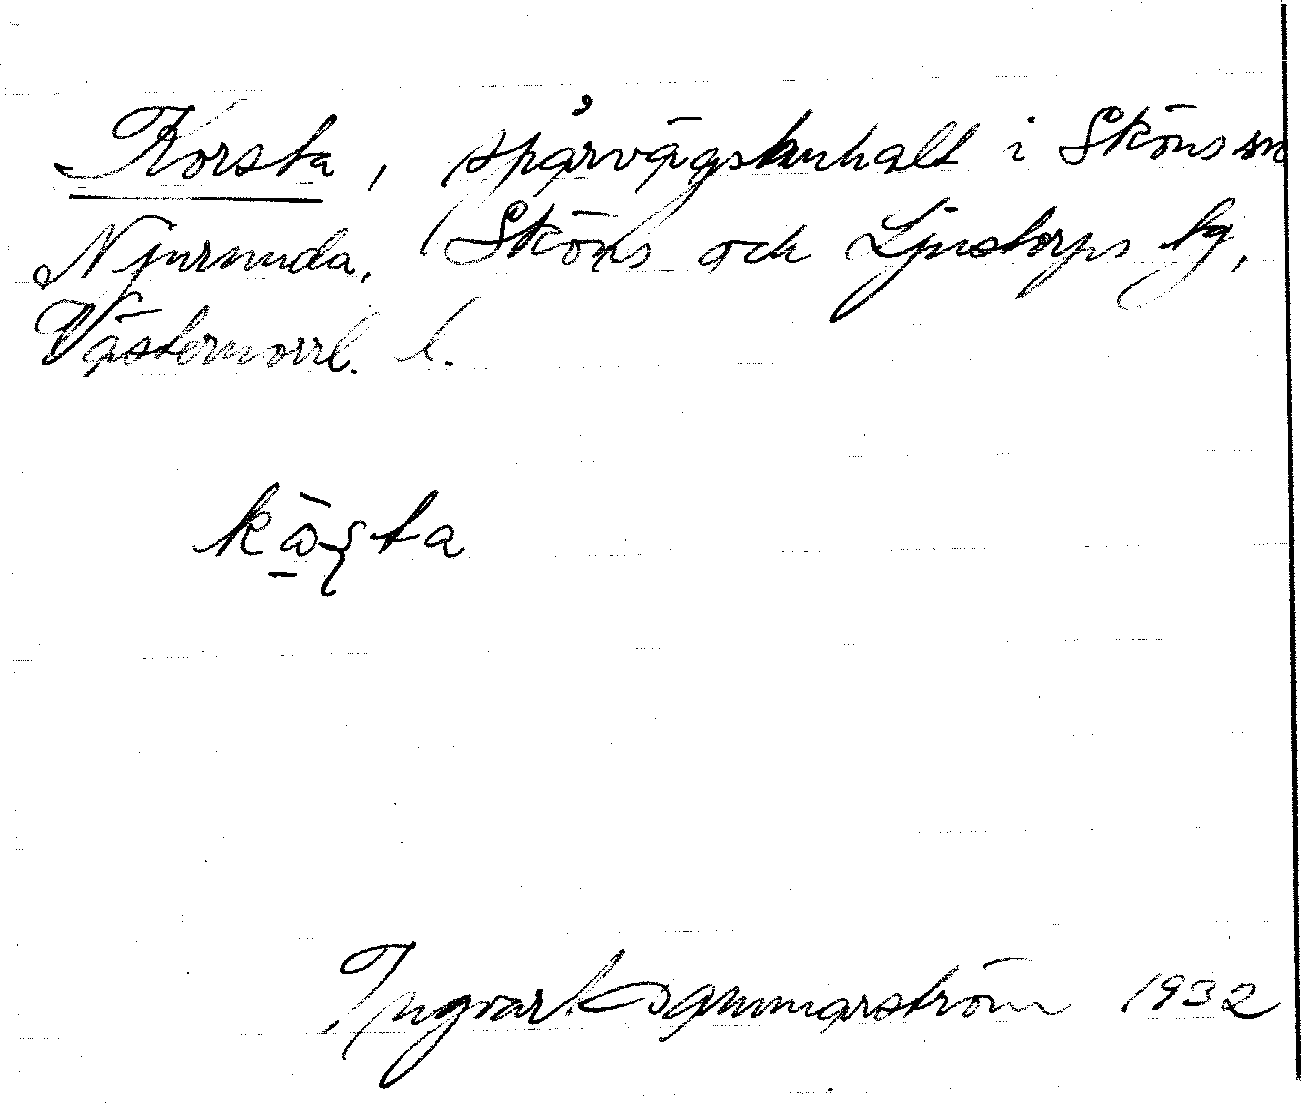 Korsta, spårvägsanhalt i Sköns sn
Njurunda, Sköns och Ljustorps tg,
Västernorrl. l.
Ingvar Hammarström 1932